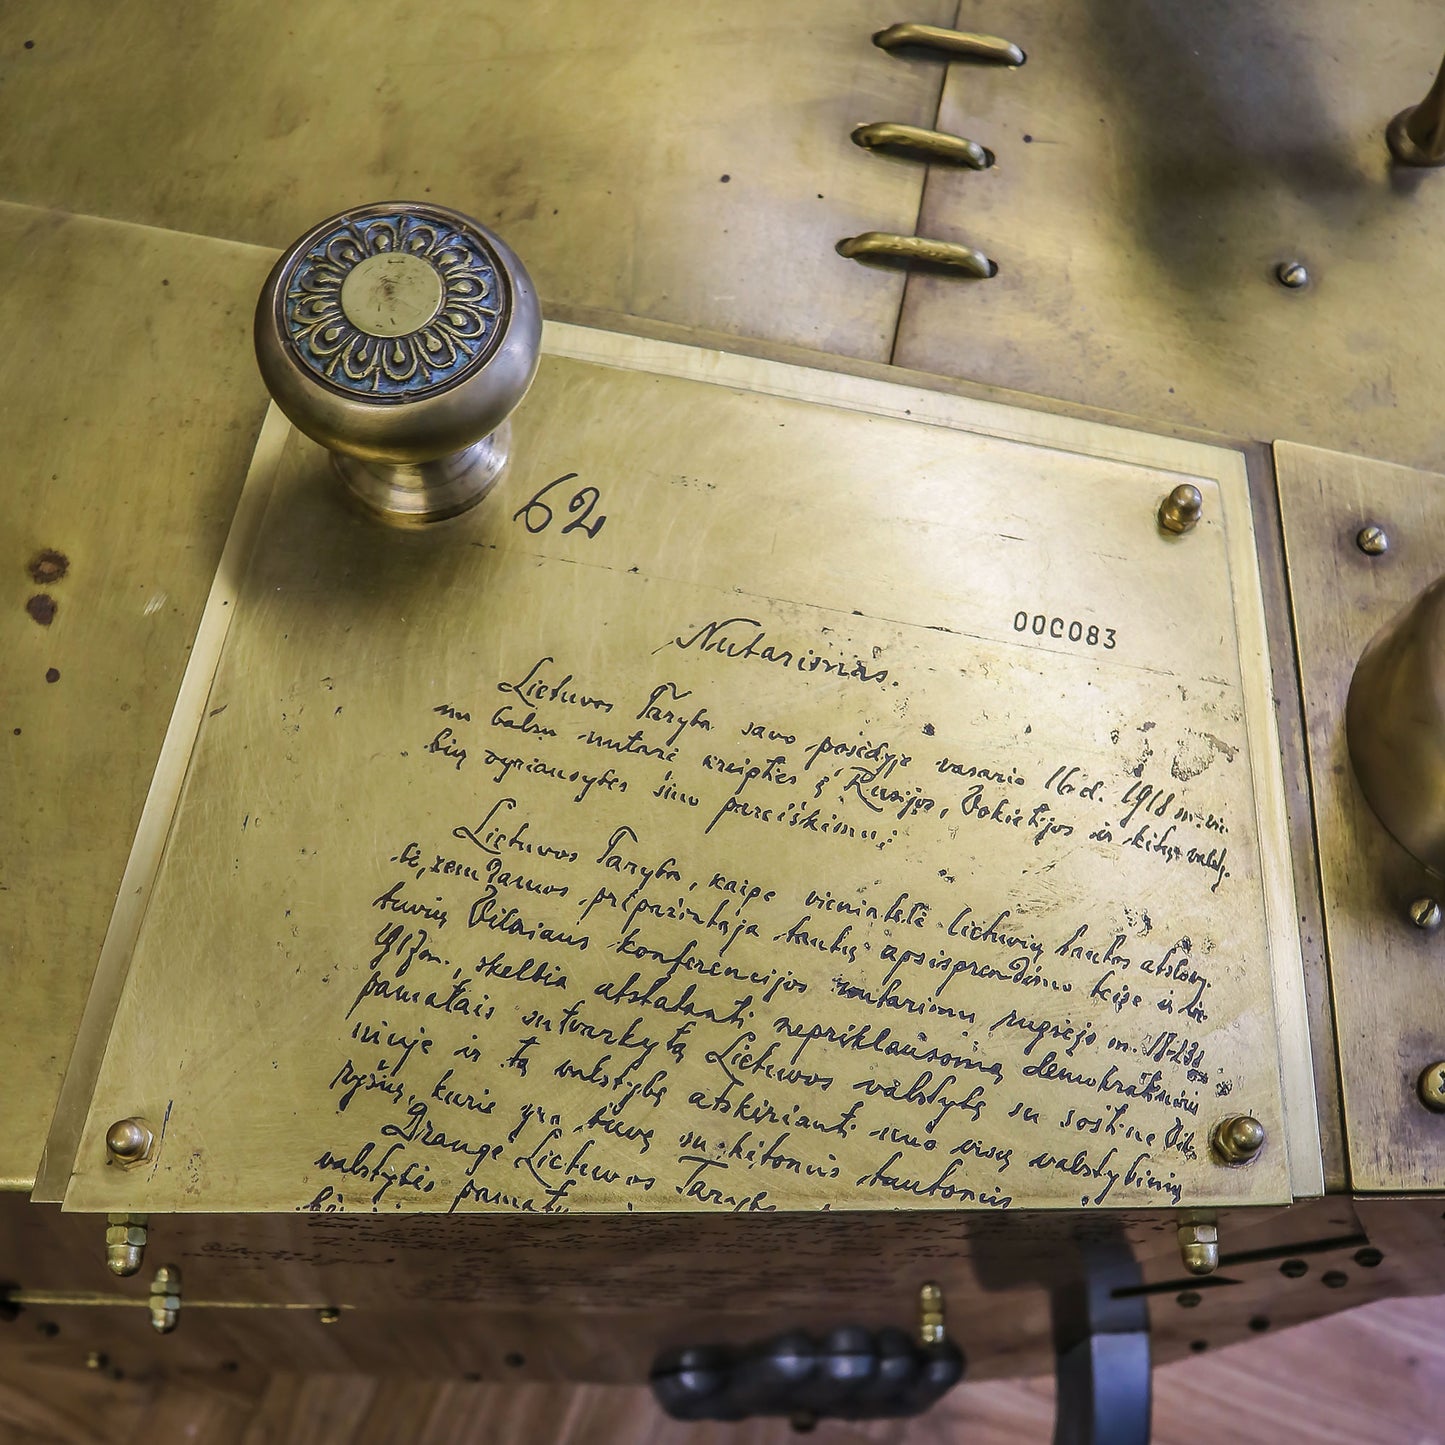 62
000083
Nutarimas.
Lietuvos Taryba savo posėdyje vasario 16 d. 1918 m. vie-
nu balsu nutarė kreipties į Rusijos, Vokietijos ir kitų valsty-
bių vyriausybes šiuo pareiškimu:
Lietuvos Taryba, kaipo vienintelė lietuvių tautos atstovy-
bė, remdamos pripažintąja tautų apsisprendimo teise ir lie-
tuvių Vilniaus konferencijos nutarimu rugsėjo m. 18-23 d.
1917 m., skelbia atstatanti nepriklausomą demokratiniais
pamatais sutvarkytą Lietuvos valstybę su sostine Vil-
niuje ir tą valstybę atskirianti nuo visų valstybinių
ryšių, kurie yra buvę su kitomis tautomis
Drauge Lietuvos Taryba
valstybės pamat